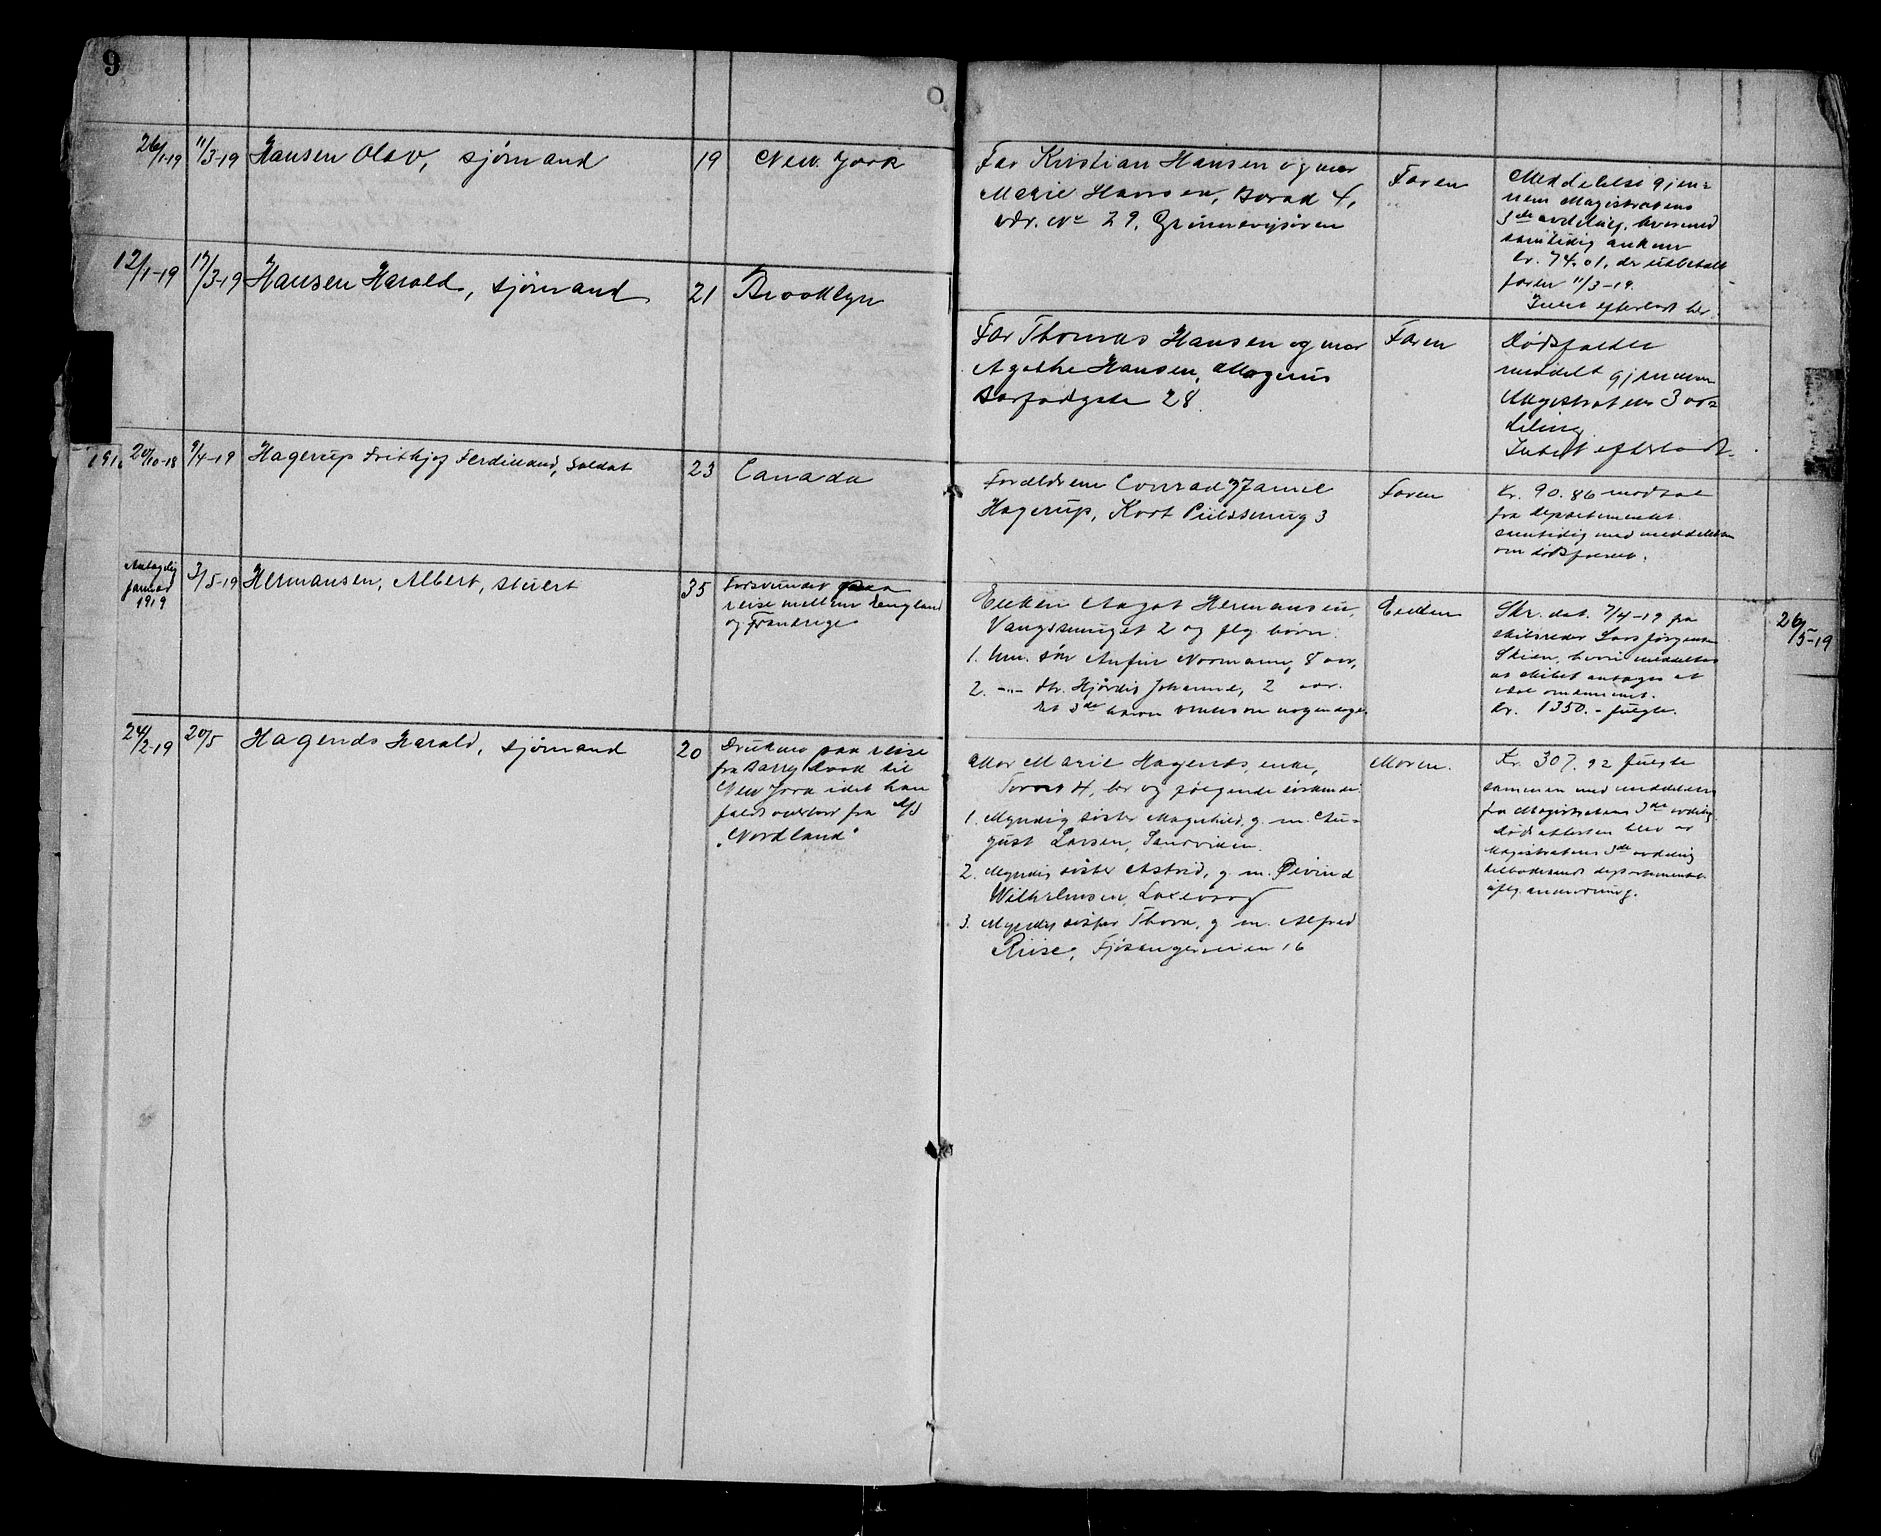 9
26/1-19 11/3-19 Hansen Olav, sjømand 19 New. York
Far Kristian Hansen og mor
Marie Hansen, Borad 4,
vær. No 29, Grønnevigsøren
Faren
Meddelelse gjen-
nem Magistratens
3de avdeling, hvormed
samtidig ankom
kr. 74.01, der utbetalt
faren 11/3-19.
Intet efterladt her.
12/1-19 17/3-19 Hansen Harald, sjømand 21 Brooklyn
Far Thomas Hansen og mor
Agathe Hansen, Magnus
Barfodgate 28.
Faren
Dødsfaldet
meddelt gjennem
Magistratens 3 av-
deling
Intet efterladt.
191 20/10-18 9/4-19 Hagerup Frithjof Ferdinand, Soldat 23 Canada
Forældrene Conrad og Janne
Hagerup, Kort Piilssmug 3
Faren
Kr. 90.86 modtat
fra departementet
samtidig med meddelelsen
om dødsfaldet.
Antagelig
januar
1919
3/5-19 Hermansen, Albert, stuert 35
Forsvundet paa
reise mellem England
og Frankrige
Enken Aagot Hermansen,
Vangssmuget 2 og flg. børn:
1. Um. søn Anfin Normann, 8 aar,
2. -"- dtr. Hjørdis Johanne, 2 aar.
Enken
Skr. dat. 7/4-19 fra
skibsreder Lars Jørgensen
Skien, hvori meddeltes
at skibet antages at
være omkommet.
Kr. 1350.- fulgte.
26/5-19
24/2-19 20/5 Hagends Harald, sjømand 20
Druknet paa reise
fra Barry Dock til
New York idet han
faldt overbord fra M/S
"Nordland"
Mor Marie Hagends, enke,
Torvet 4, br og følgende søskende:
1. Myndig søster Magnhild, g. m. Au-
gust Larsen, Sandviken.
2. Myndig søster Astrid, g. m. Øivind
Wilhelmsen, Laxevaag
3. Myndig søster Thora, g. m. Alfred
Riise, Fjøsangerveien 16
Moren.
Kr. 307.92 fulgte
sammen med meddelelsen
fra Magistratens 3de avdeling
Dødsattesten blev av
Magistratens 3de avdeling
tilbakesendt departementet
efter anmodning.